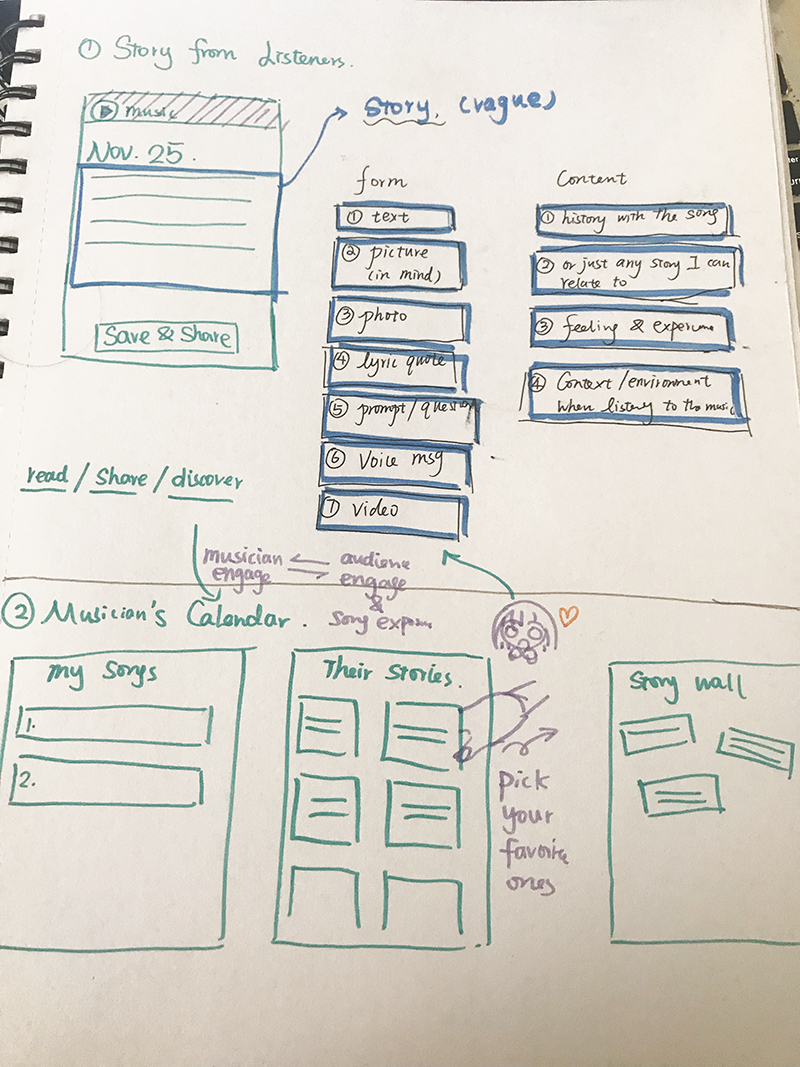 ① Story from Listeners.
music
Nov. 25.
Save & Share
Story. (vague)
form
① text
② picture
(in mind)
③ photo
④ lyric quote
⑤ prompt/question
⑥ Voice msg
⑦ Video
Content
① history with the song
② or just any story I can
relate to
③ feeling &
④ Context/environment
when listeny to the music
read / Share / discover
musician
engage
audiene
engage
&
song
② Musician's Calendar.
my Songs
1.
2.
Their Stories.
pick
your
favorite
ones
Story wall